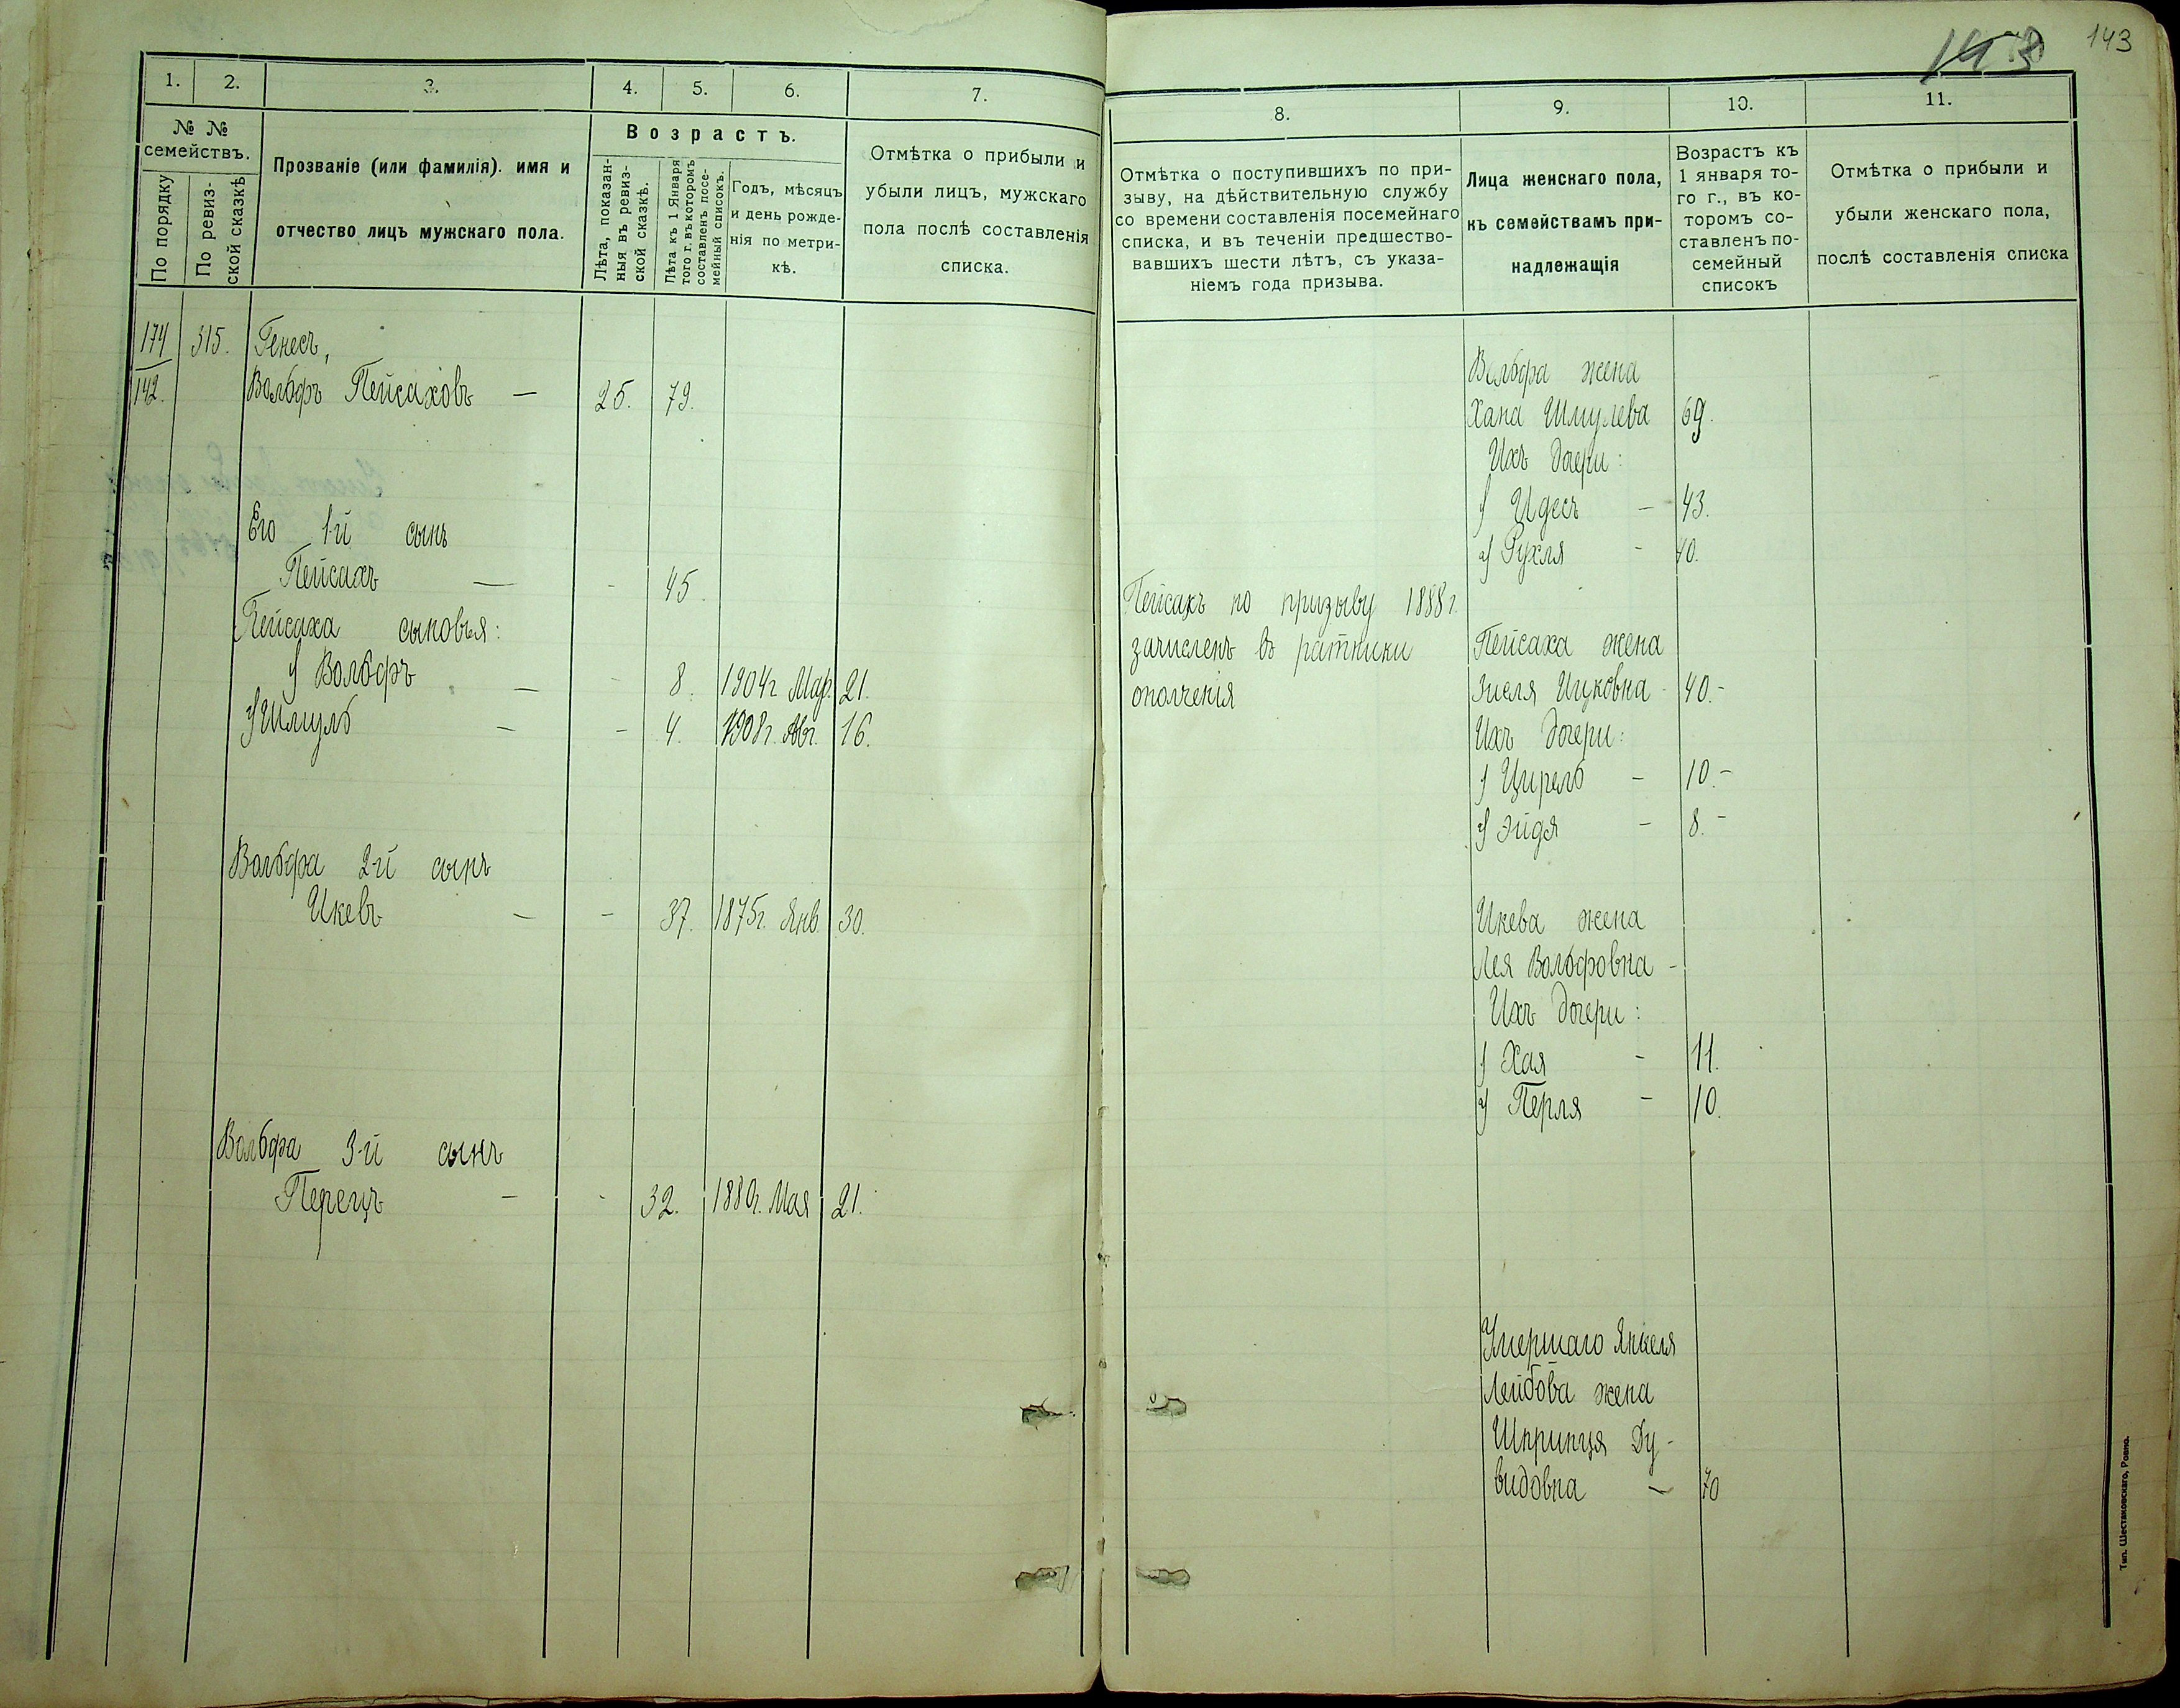 143 143
1. 2. 3. 4. 5. 6. 7.
№ №
семействъ.
По порядку
По ревиз-
ской сказкѣ
Прозваніе (или фамилія). имя и
отчество лицъ мужскаго пола.
Возрастъ.
Лѣта, показан-
ныя въ ревиз-
ской сказкѣ.
Лѣта къ 1 Января
того г. въ которомъ
составленъ посе-
мейный списокъ.
Годъ, мѣсяцъ
и день рожде-
нія по метри-
кѣ.
Отмѣтка о прибыли и
убыли лицъ, мужскаго
пола послѣ составленія
списка.
174 315. Генесъ,
142. Вольфъ Пейсаховъ — 25. 79.
Его 1-й сынъ
Пейсахъ — - 45
Пейсаха сыновья:
1/ Вольфъ — - 8. 1904г. Мар. 21.
2/ Шмуль — - 4. 1908г. Авг. 16.
Вольфа 2-й сынъ
Икевъ — - 37. 1875г. Янв. 30.
Вольфа 3-й сынъ
Перецъ — - 32. 1880г. Мая 21.
8. 9. 10. 11.
Отмѣтка о поступившихъ по при-
зыву, на дѣйствительную службу
со времени составленія посемейнаго
списка, и въ теченіи предшество-
вавшихъ шести лѣтъ, съ указа-
ніемъ года призыва.
Лица женскаго пола,
къ семействамъ при-
надлежащія
Возрастъ къ
1 января то-
го г., въ ко-
торомъ со-
ставленъ по-
семейный
списокъ
Отмѣтка о прибыли и
убыли женскаго пола,
послѣ составленія списка
Вольфа жена
Хана Шмулева 69.
Ихъ дочери:
1/ Идесъ — 43.
2/ Рухля - 40.
Пейсахъ по призыву 1888г.
зачисленъ въ ратники
ополченія
Пейсаха жена
Зисля Ицковна - 40.-
Ихъ дочери:
1/ Цирель — 10.-
2/ Эйдя — 8.-
Икева жена
Лея Вольфовна -
Ихъ дочери:
1/ Хая - 11.
2/ Перля - 10.
Умершаго Янкеля
Лейбова жена
Шпринця Ду-
видовна — 70
Тип. Шестаковскаго, Ровно.